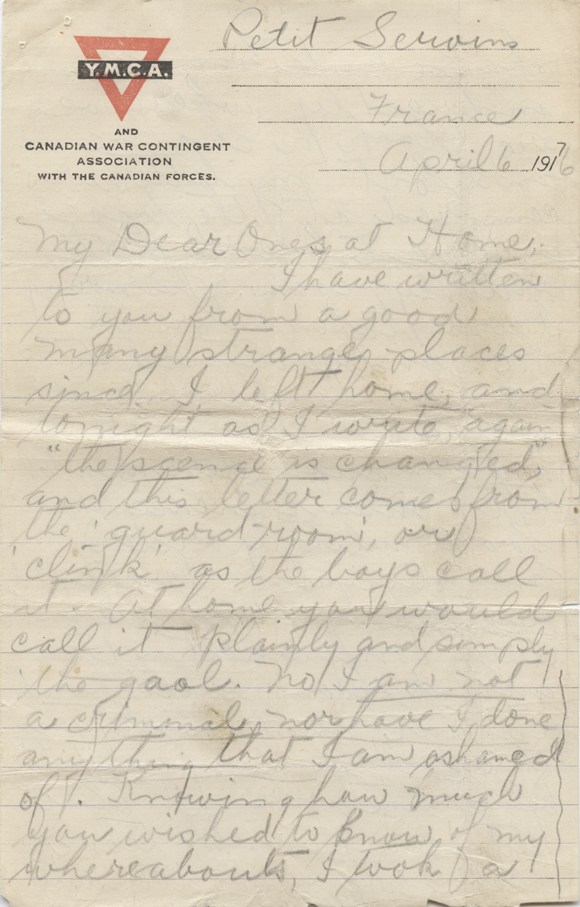 Petit Servins
Y.M.C.A.
France
AND
CANADIAN WAR CONTINGENT
ASSOCIATION
WITH THE CANADIAN FORCES.
April 6 1917
My Dear Ones at Home,
I have written
to you from a good
many strange places
since I left home, and
tonight as I write, again
"the scene is changed",
and this letter comes from
the 'guard-room', or
'clink' as the boys call
it. At home you would
call it plainly and simply
the gaol. No I am not
a criminal, nor have I done
anything that I am ashamed
of. Knowing how much
you wished to know of my
whereabouts, I took a